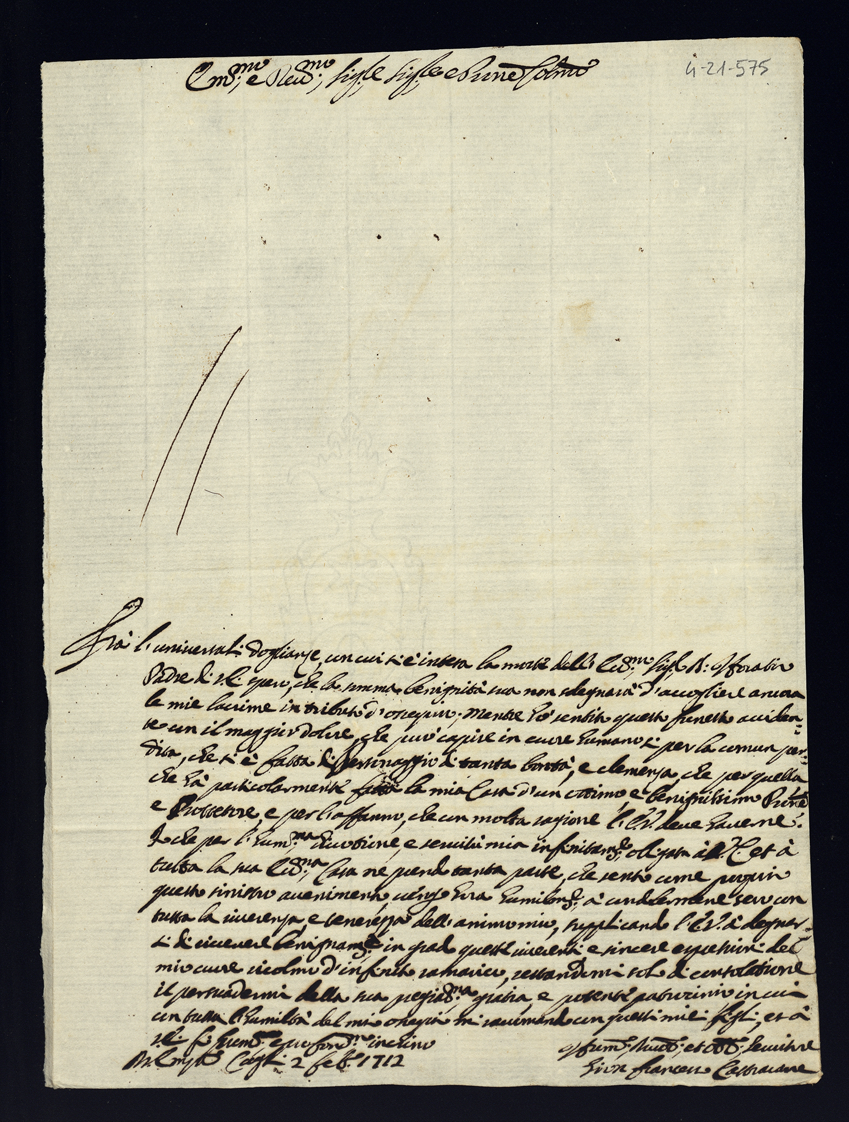 Em.mo e Reu.mo Sig.re Sig.re e Prone Colmo
4-21-575
Frà l'universali doglianze, con cui si è intesa la morte dell' Ecc.mo Sig.re D:
Padre di V.E. spero, che la somma benignità sua non sdegnarà d'accogliere ancora
le mie lacrime in tributo d'ossequio. Mentre hò sentito questo funesto acciden=
te con il maggior dolore, che può capire in cuore humano, e per la comun per=
dita, che si è fatta di Personaggio di tanta bontà, e clemenza, che per quella
che hà particolarmente fatto la mia Casa d'un ottimo e benignissimo Prone
e Protettore, e per l'affanno, che con molta ragione l'E.V. deve haverne.
Io che per l'hum.ma divotione, e servitù mia infinitam.te obligata à V.E. et à
tutta la sua Ecc.ma Casa ne prendo tanta parte, che sento come proprio
questo sinistro avvenimento, vengo hora humilm.te à condolermene seco con
tutta la riverenza, e tenerezza dell'animo mio, supplicando l'E.V. à degnar=
si di ricevere benignam.te in grado questi riverenti e sincere espressioni del
mio cuore ricolmo d'infinito ramarico, restandomi solo di consolatione
il persuadermi della sua pregiat.ma gratia, e potente patrocinio in cui
con tutta l'humiltà del mio ossequio mi raccomando con questi miei figli, et à
V.E. fò hum.ma e profond.ma inchino
Di V.E. Cagli 2 feb.o 1712
Hum.mo, Divot.mo, et Obl.mo Servitore
Gion francesco Castracane